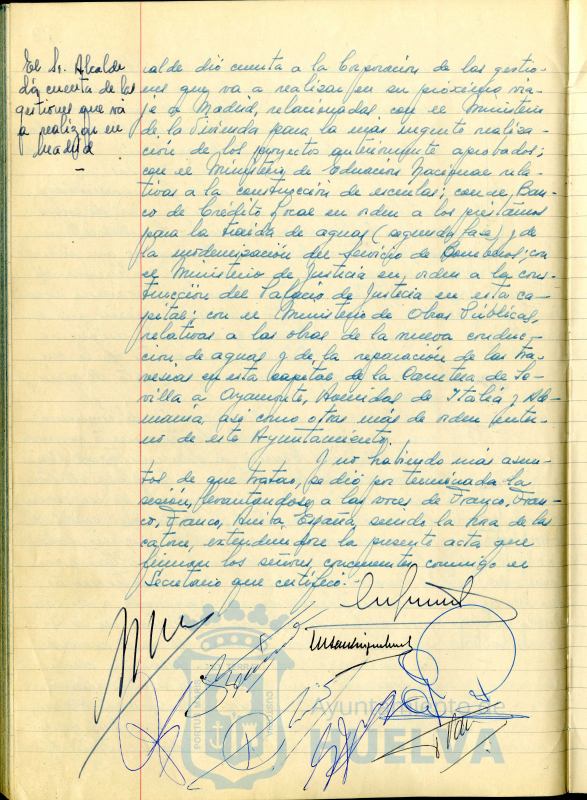 El Sr. Alcalde
dá cuenta de las
gestiones que vá
a realizar en
Madrid
—
alde dió cuenta a la Corporación de las gestio-
nes que va a realizar en su próximo via-
je a Madrid, relacionadas con el Ministerio
de la Vivienda para la más urgente realiza-
ción de los proyectos anteriormente aprobados;
con el Ministerio de Educación Nacional rela-
tivas a la construcción de escuelas; con el Ban-
co de Crédito Local en orden a los préstamos
para la traida de aguas (segunda fase) y de
la modernización del Servicio de Bomberos; con
el Ministerio de Justicia en orden a la cons-
trucción del Palacio de Justicia en esta ca-
pital; con el Ministerio de Obras Públicas,
relativas a las obras de la nueva conduc-
ción de aguas y de la reparación de las tra-
vesias en esta capital de la Carretera de Se-
villa a Ayamonte, Avenidas de Italia y Ale-
mania, asi como otras más de orden inter-
no de este Ayuntamiento.
Y no habiendo más asun-
tos de que tratar, se dió por terminada la
sesión, levantandose a las voces de Franco, Fran-
co, Franco, Arriba España, siendo la hora de las
catorce, extendiendose la presente acta que
firman los señores concurrentes conmigo el
Secretario que certifico.-
Ayuntamiento de
HUELVA